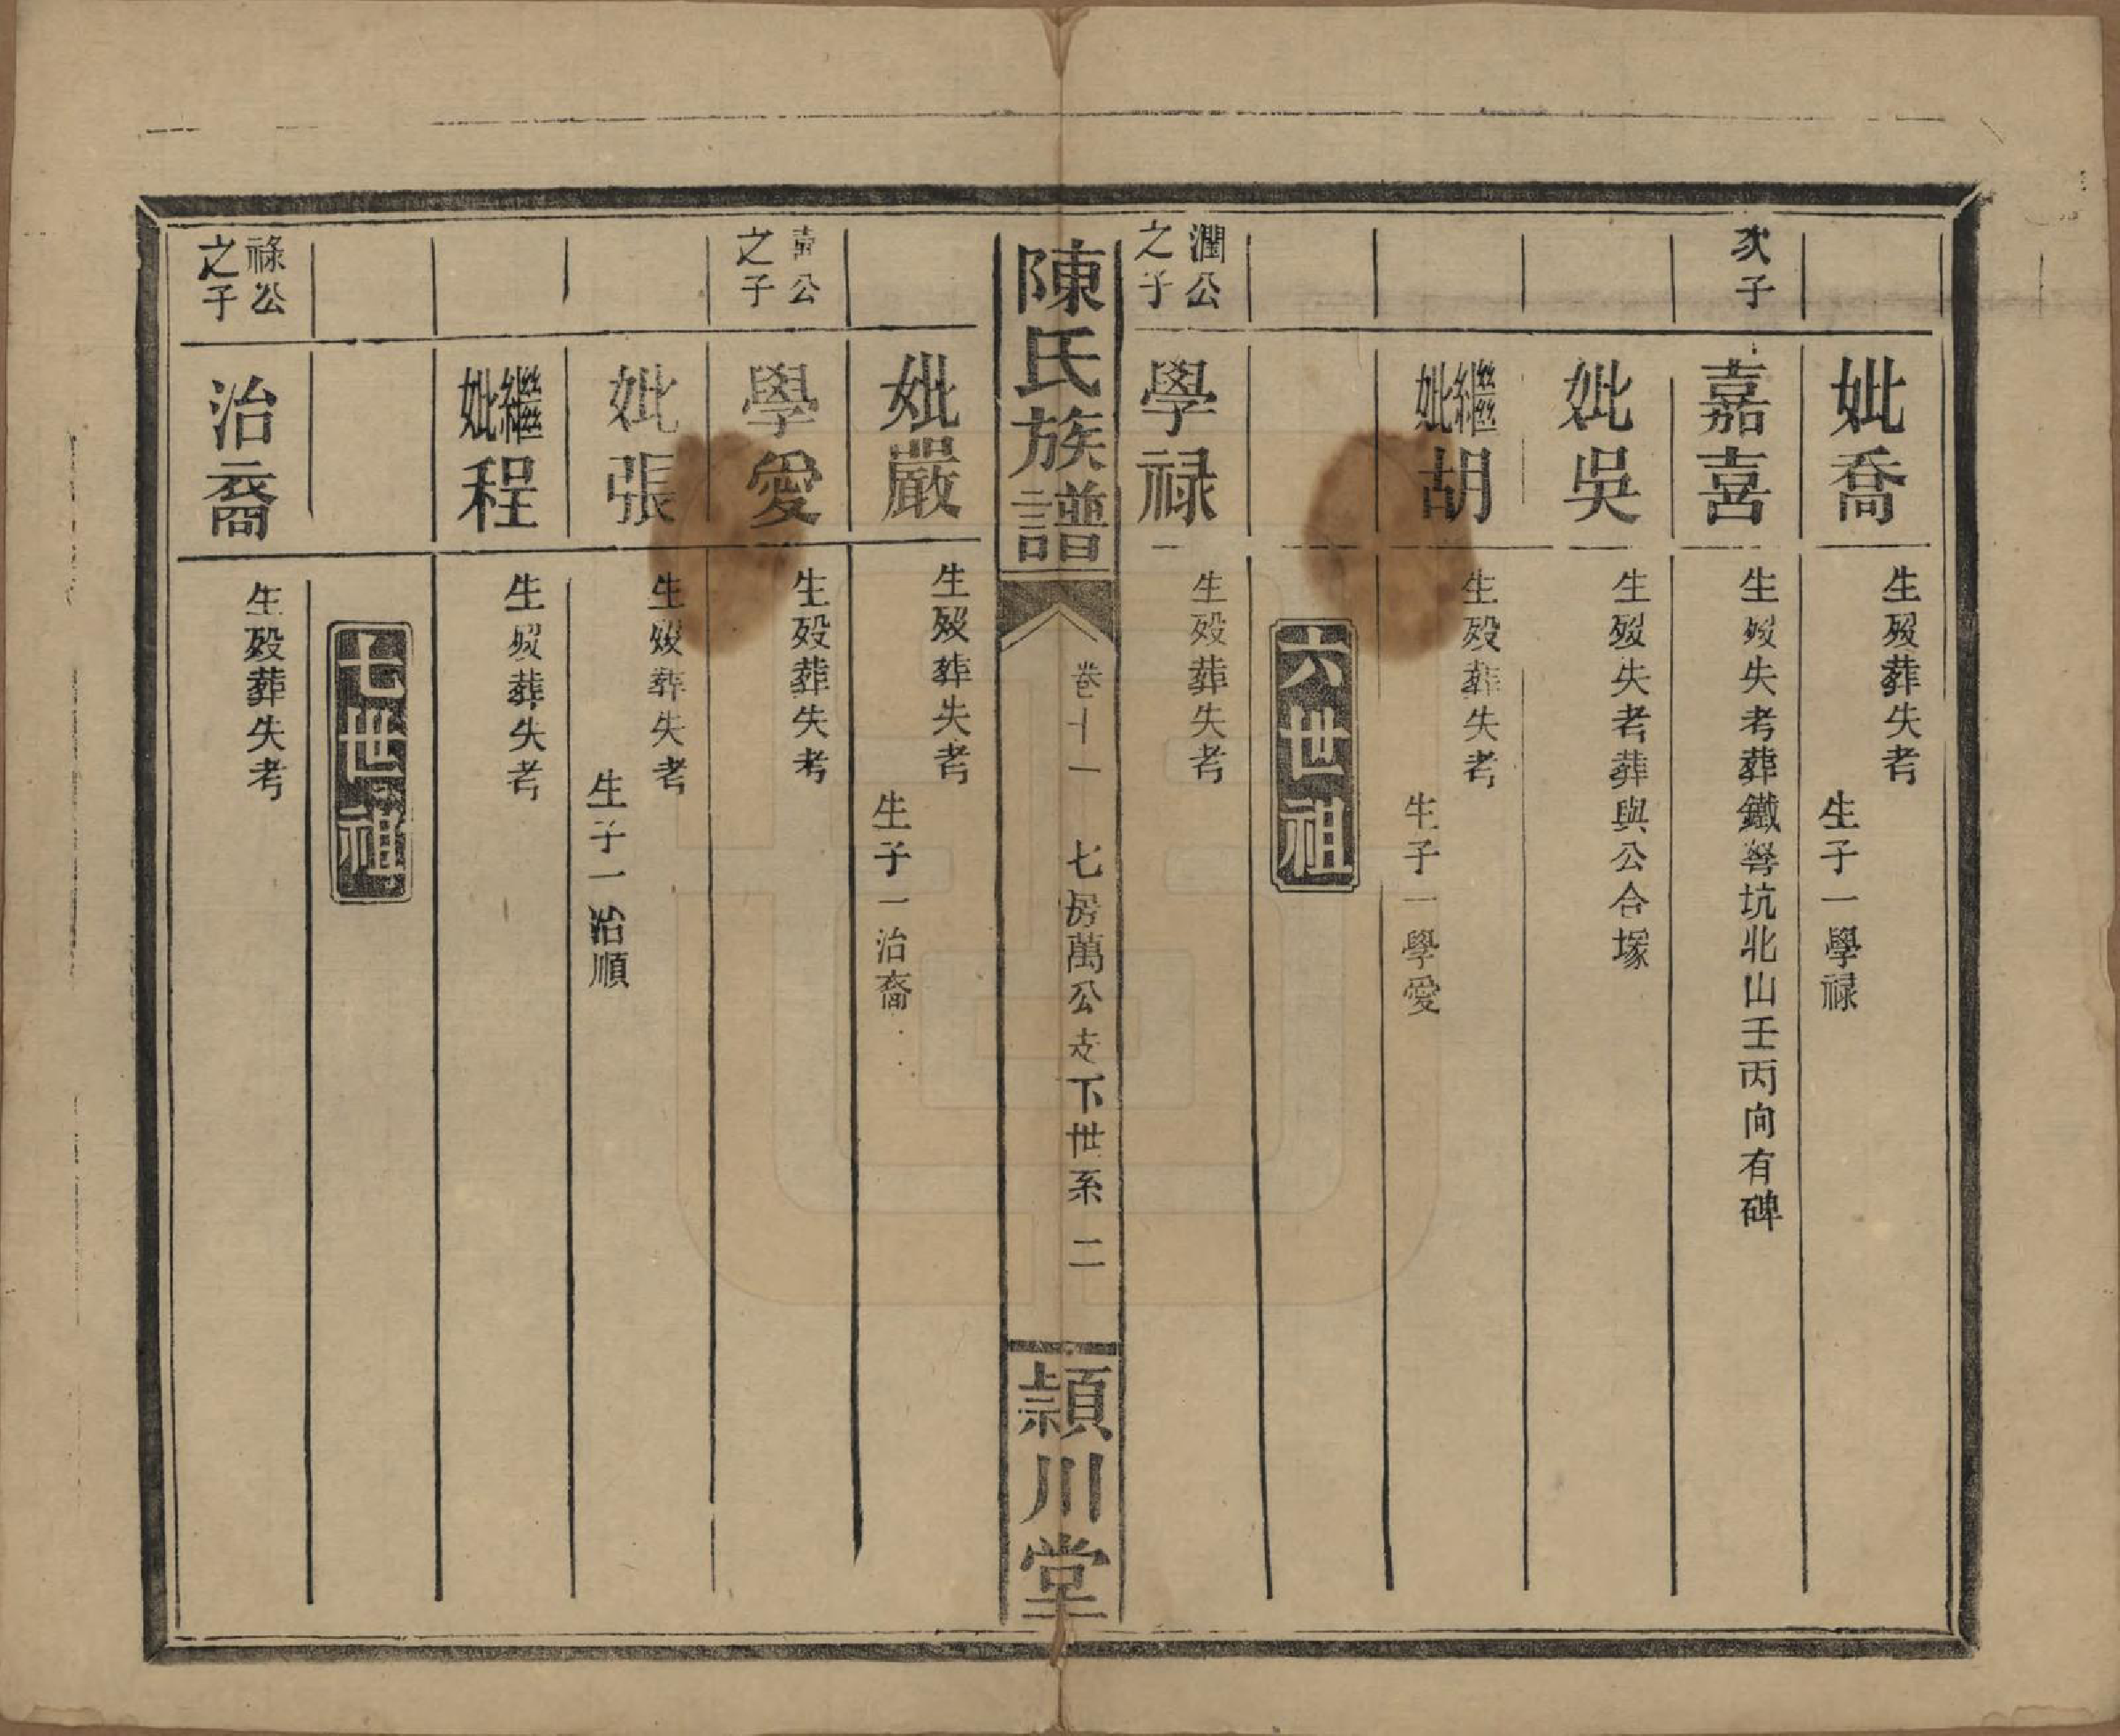 妣喬
生歿葬失考
生子一學禄
次子
嘉喜
生歿失考葬鐵弩坑北山壬丙向有碑
妣吳
生歿失考葬與公合塚
繼妣胡
生歿葬失考
生子一學愛
六世祖
潤公之子
學禄
生歿葬失考
陳氏族譜
卷十一
七房萬公支下世系
二
頴川堂
妣嚴
生歿葬失考
生子一治裔
公之子
學愛
生歿葬失考
妣張
生歿葬失考
生子一治順
繼妣程
生歿葬失考
七世祖
祿公之子
治裔
生歿葬失考